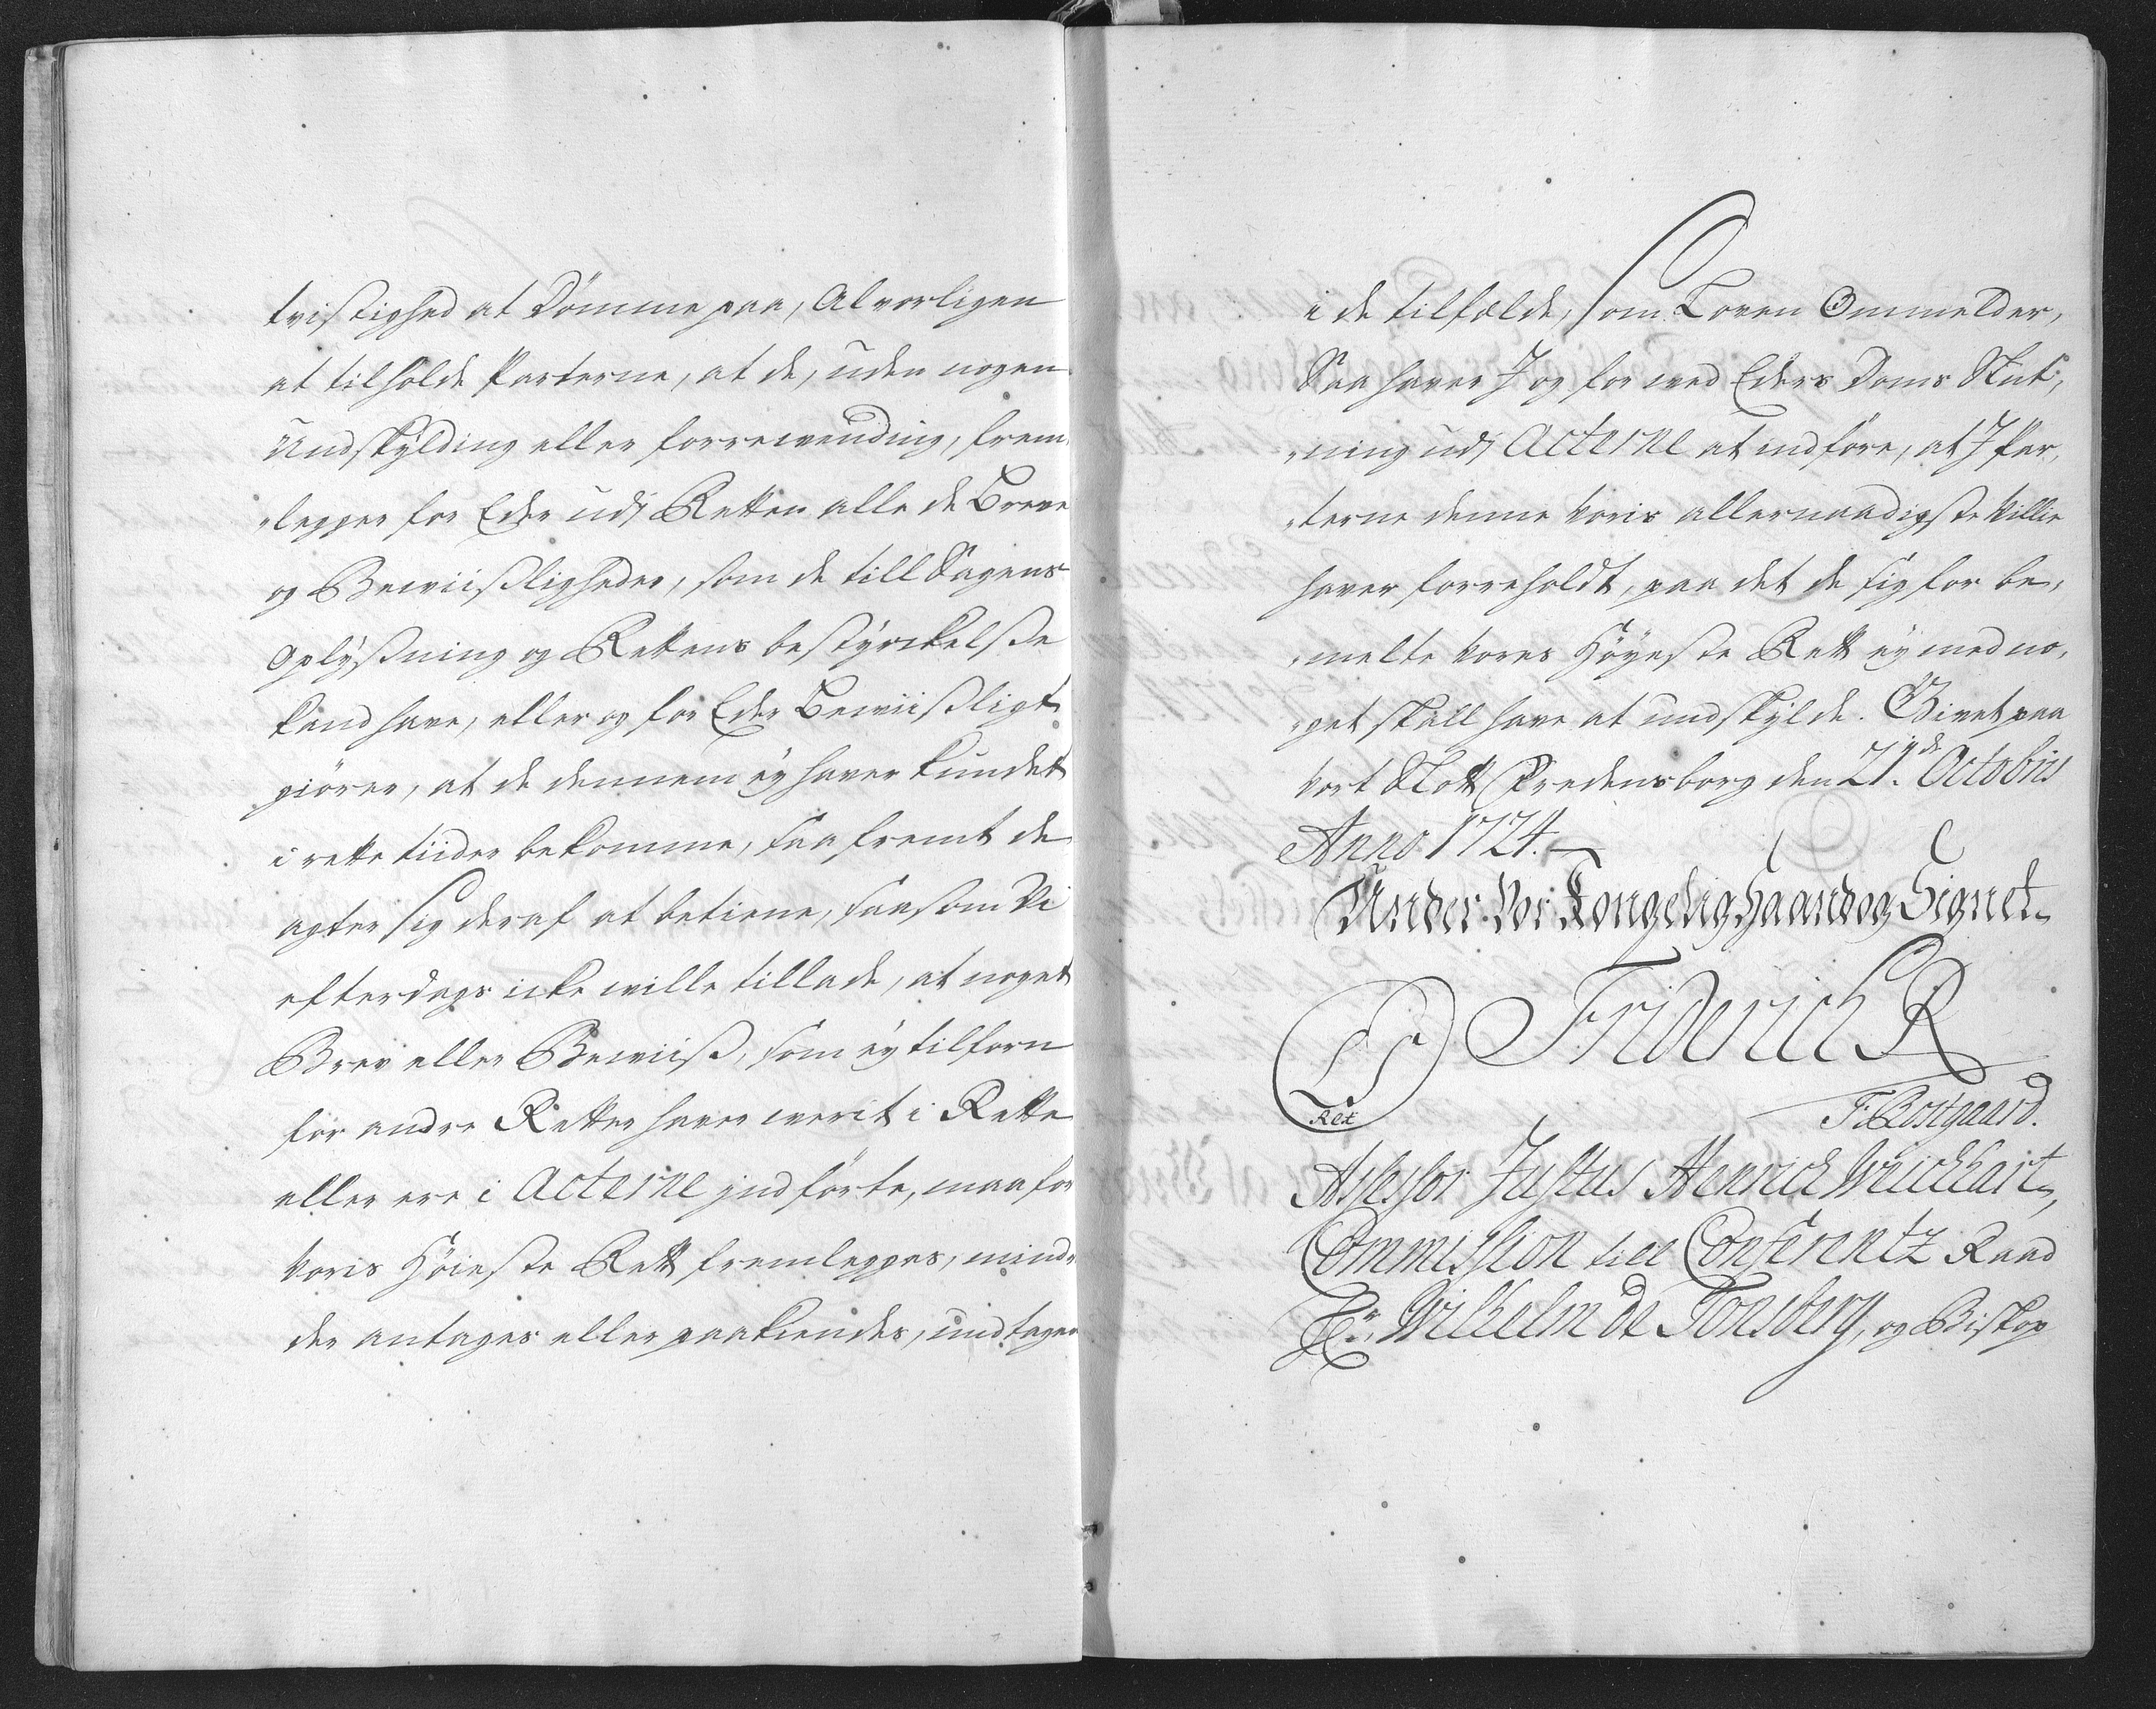 tvistighed at Dömme paa, Alvorligen
at tilholde Parterne, at de, uden nogen
Undskylding eller forrewending, frem
„legger for Eder udj Retten alle de Breve
og Bewiisligheder, som de till Sagens
Oplysning og Rettens bestyrckelse
kand have, eller og for Eder Bewiisligt
giörer, at de dennem ey haver kundet
i rette tiider bekomme, saafremt de
agter sig deraf at betiene, saasom Vi
efterdags icke wille tillade, at noget
Brev eller Bewiis, som ey tilforn
for andre Retter haver werit i Rette
eller ere i Acterne jndförte, maa for
Voris Höieste Rett fremlegges, mind„
der antages eller paakiendes, undtagen
i de tilfælde, som Loven Ommelder,
Saa haver J og for ved Eders Doms Slut„
„ning udj Acterne at indföre, at J Par„
„terne denne Voris allernaadigste Villie
haver foreholdt, paa det de sig for be„
„melte Vores Höyeste Rett ey med no„
„get skall have at undskylde. Givet paa
Vort Slott Fredensborg den 21de Octobris
Anno 1724.
Under Vor Kongelig Haand og Signet
LS Friderich R
Rex
F: Rostgaard.
Assessor Justus Henrich Weickhart,
Commission till Conferentz Raad
Hr. Wilhelm de Tonsberg, og Biskop